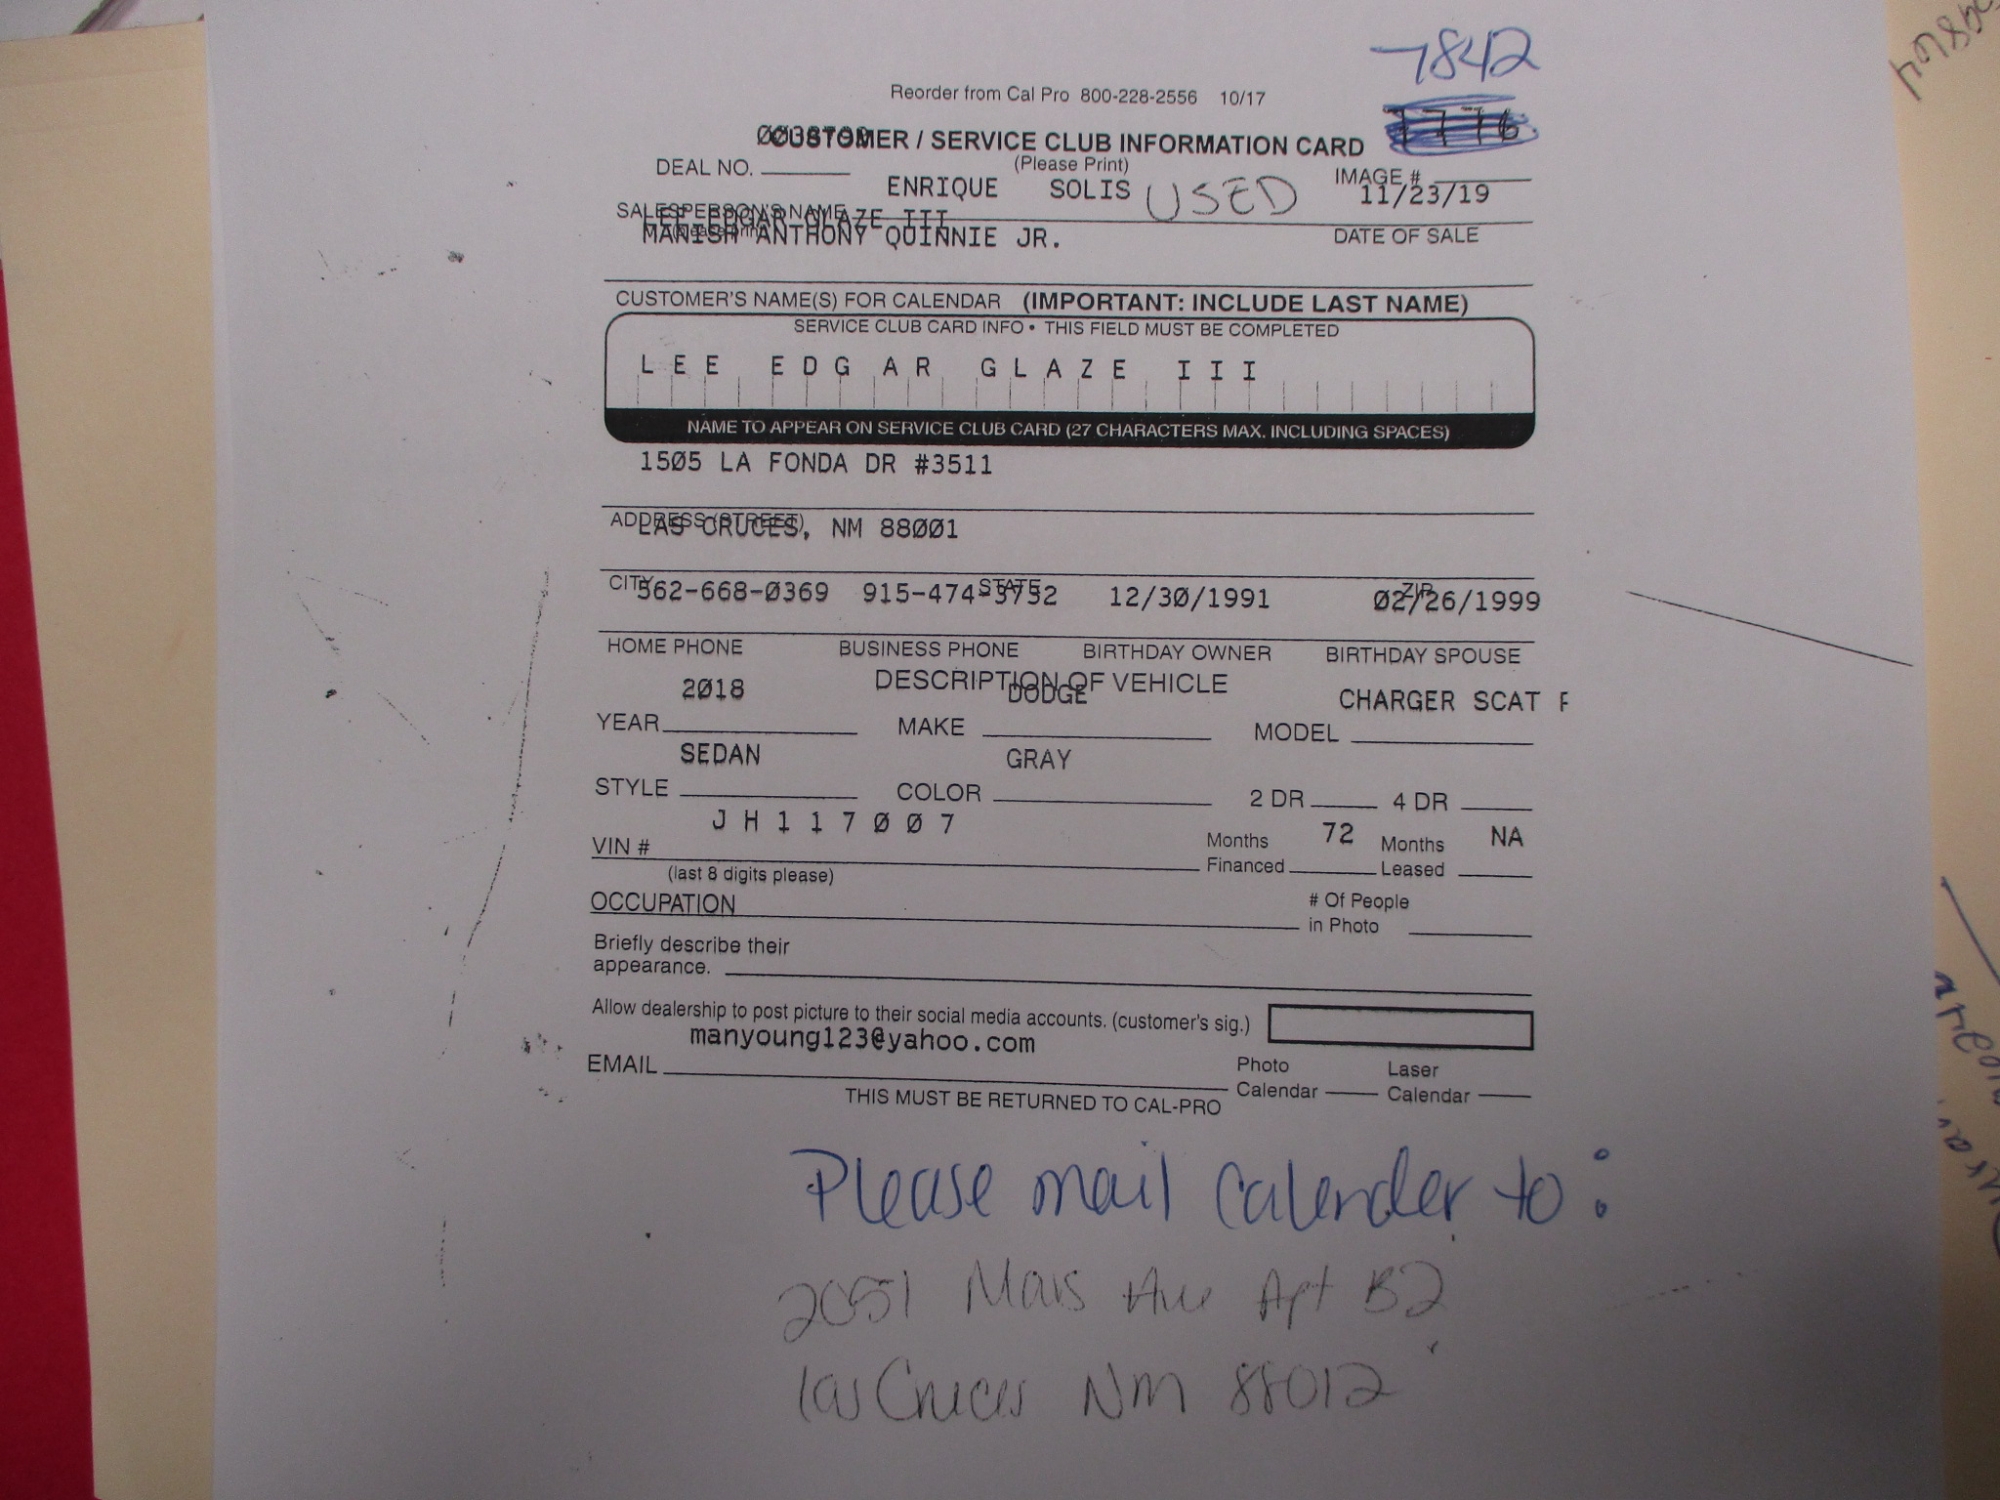 7842
Reorder from Cal Pro 800-228-2556 10/17
1776
CUSTOMER / SERVICE CLUB INFORMATION CARD
(Please Print)
DEAL NO.
IMAGE #
ENRIQUE SOLIS USED 11/23/19
SALESPERSON'S NAME
LEE EDGAR GLAZE III
MANISH ANTHONY QUINNIE JR.
DATE OF SALE
CUSTOMER'S NAME(S) FOR CALENDAR (IMPORTANT: INCLUDE LAST NAME)
SERVICE CLUB CARD INFO • THIS FIELD MUST BE COMPLETED
LEE EDGAR GLAZE III
NAME TO APPEAR ON SERVICE CLUB CARD (27 CHARACTERS MAX. INCLUDING SPACES)
1505 LA FONDA DR #3511
ADDRESS (STREET)
LAS CRUCES, NM 88001
CITY STATE ZIP
562-668-0369 915-474-3732 12/30/1991 02/26/1999
HOME PHONE BUSINESS PHONE BIRTHDAY OWNER BIRTHDAY SPOUSE
DESCRIPTION OF VEHICLE
2018 DODGE CHARGER SCAT
YEAR MAKE MODEL
SEDAN GRAY
STYLE COLOR 2 DR 4 DR
JH117007
VIN # Months Financed 72 Months Leased NA
(last 8 digits please)
OCCUPATION # Of People in Photo
Briefly describe their
appearance.
Allow dealership to post picture to their social media accounts. (customer's sig.)
manyoung123@yahoo.com
EMAIL Photo Calendar Laser Calendar
THIS MUST BE RETURNED TO CAL-PRO
Please mail calender to:
2051 Mars Ave Apt B2
las Cruces NM 88012